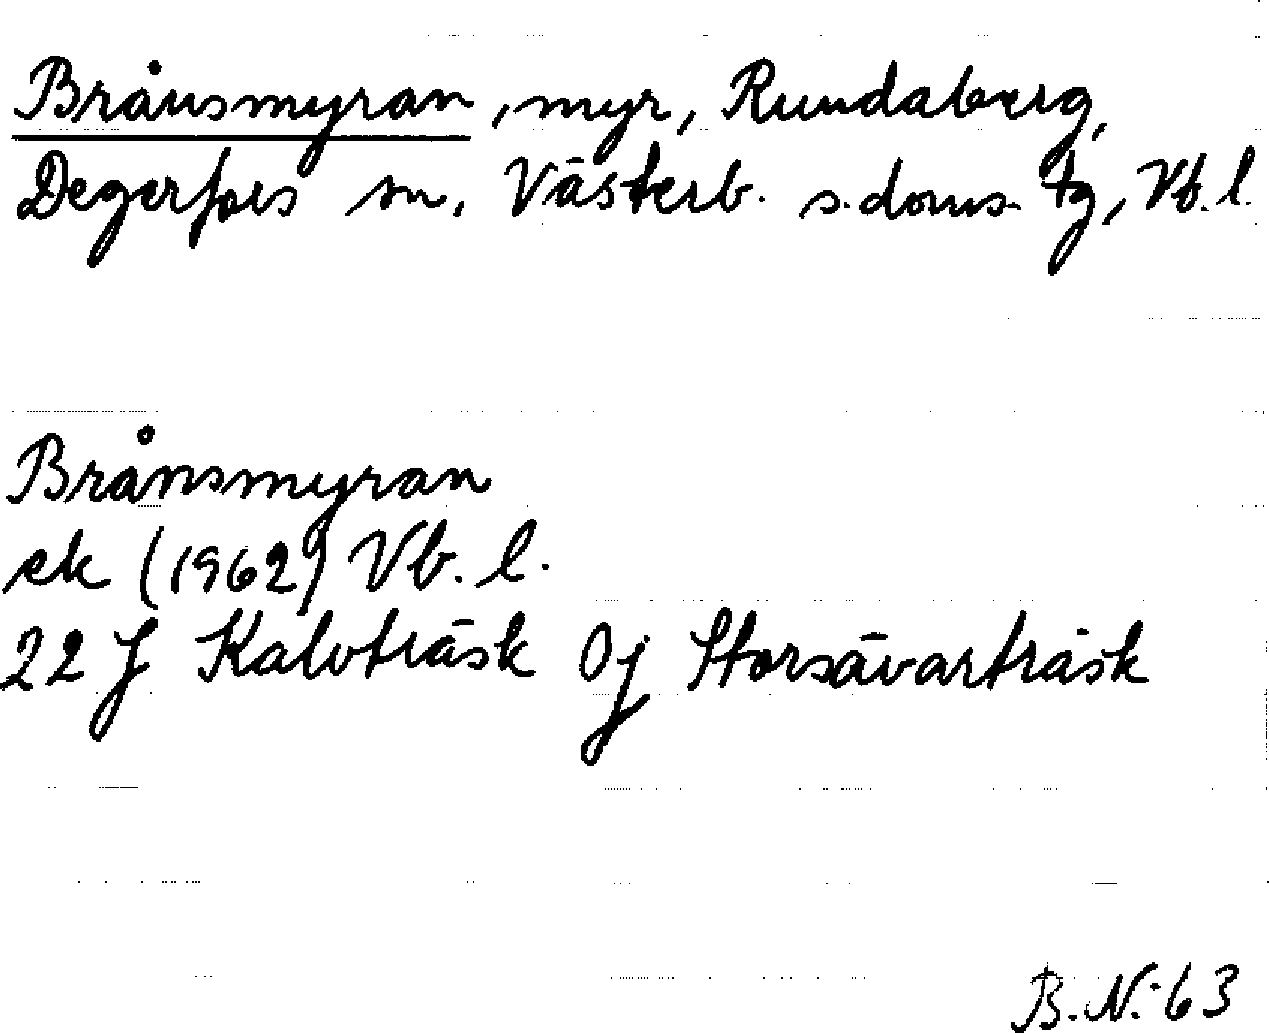 Brånsmyran, myr, Rundaberg,
Degerfors sn, Västerb. s. doms. tg, Vb. l.
Brånsmyran
ek (1962) Vb. l.
22 J Kalvträsk 0j Storsävarträsk
B.N. 63